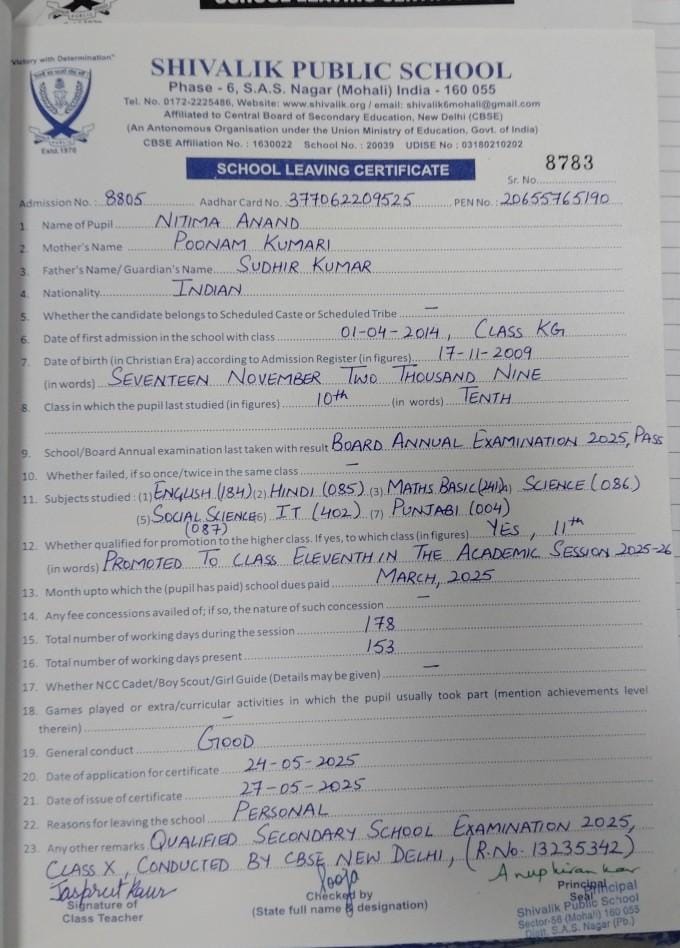 "Victory with Determination"
SHIVALIK PUBLIC SCHOOL
Phase - 6, S.A.S. Nagar (Mohali) India - 160 055
Tel. No. 0172-2225486, Website: www.shivalik.org / email: shivalik6mohali@gmail.com
Affiliated to Central Board of Secondary Education, New Delhi (CBSE)
(An Antonomous Organisation under the Union Ministry of Education, Govt. of India)
CBSE Affiliation No. : 1630022 School No. : 20039 UDISE No : 03180210202
Estd. 1976
SCHOOL LEAVING CERTIFICATE
Sr. No. 8783
Admission No. : 8805 Aadhar Card No. 377062209525 PEN No. : 20655765190
1. Name of Pupil NITIMA ANAND
2. Mother's Name POONAM KUMARI
3. Father's Name/ Guardian's Name SUDHIR KUMAR
4. Nationality INDIAN
5. Whether the candidate belongs to Scheduled Caste or Scheduled Tribe —
6. Date of first admission in the school with class 01-04-2014, CLASS KG
7. Date of birth (in Christian Era) according to Admission Register (in figures) 17-11-2009
(in words) SEVENTEEN NOVEMBER TWO THOUSAND NINE
8. Class in which the pupil last studied (in figures) 10th (in words) TENTH
9. School/Board Annual examination last taken with result BOARD ANNUAL EXAMINATION 2025, PASS
10. Whether failed, if so once/twice in the same class —
11. Subjects studied : (1) ENGLISH (184) (2) HINDI (085) (3) MATHS BASIC (241) (4) SCIENCE (086)
(5) SOCIAL SCIENCE (6) IT (402) (7) PUNJABI (004)
(087)
12. Whether qualified for promotion to the higher class. If yes, to which class (in figures) YES, 11th
(in words) PROMOTED TO CLASS ELEVENTH IN THE ACADEMIC SESSION 2025-26
13. Month upto which the (pupil has paid) school dues paid MARCH, 2025
14. Any fee concessions availed of; if so, the nature of such concession —
15. Total number of working days during the session 178
16. Total number of working days present 153
17. Whether NCC Cadet/Boy Scout/Girl Guide (Details may be given) —
18. Games played or extra/curricular activities in which the pupil usually took part (mention achievements level
therein) —
19. General conduct GOOD
20. Date of application for certificate 24-05-2025
21. Date of issue of certificate 27-05-2025
22. Reasons for leaving the school PERSONAL
23. Any other remarks QUALIFIED SECONDARY SCHOOL EXAMINATION 2025,
CLASS X, CONDUCTED BY CBSE NEW DELHI, (R.No. 13235342)
Jaspreet Kaur Pooja Anupkiran Kaur
Signature of Checked by Principal
Class Teacher (State full name & designation) Seal
Principal
Shivalik Public School
Sector-56 (Mohali) 160 055
Distt. S.A.S. Nagar (Pb.)